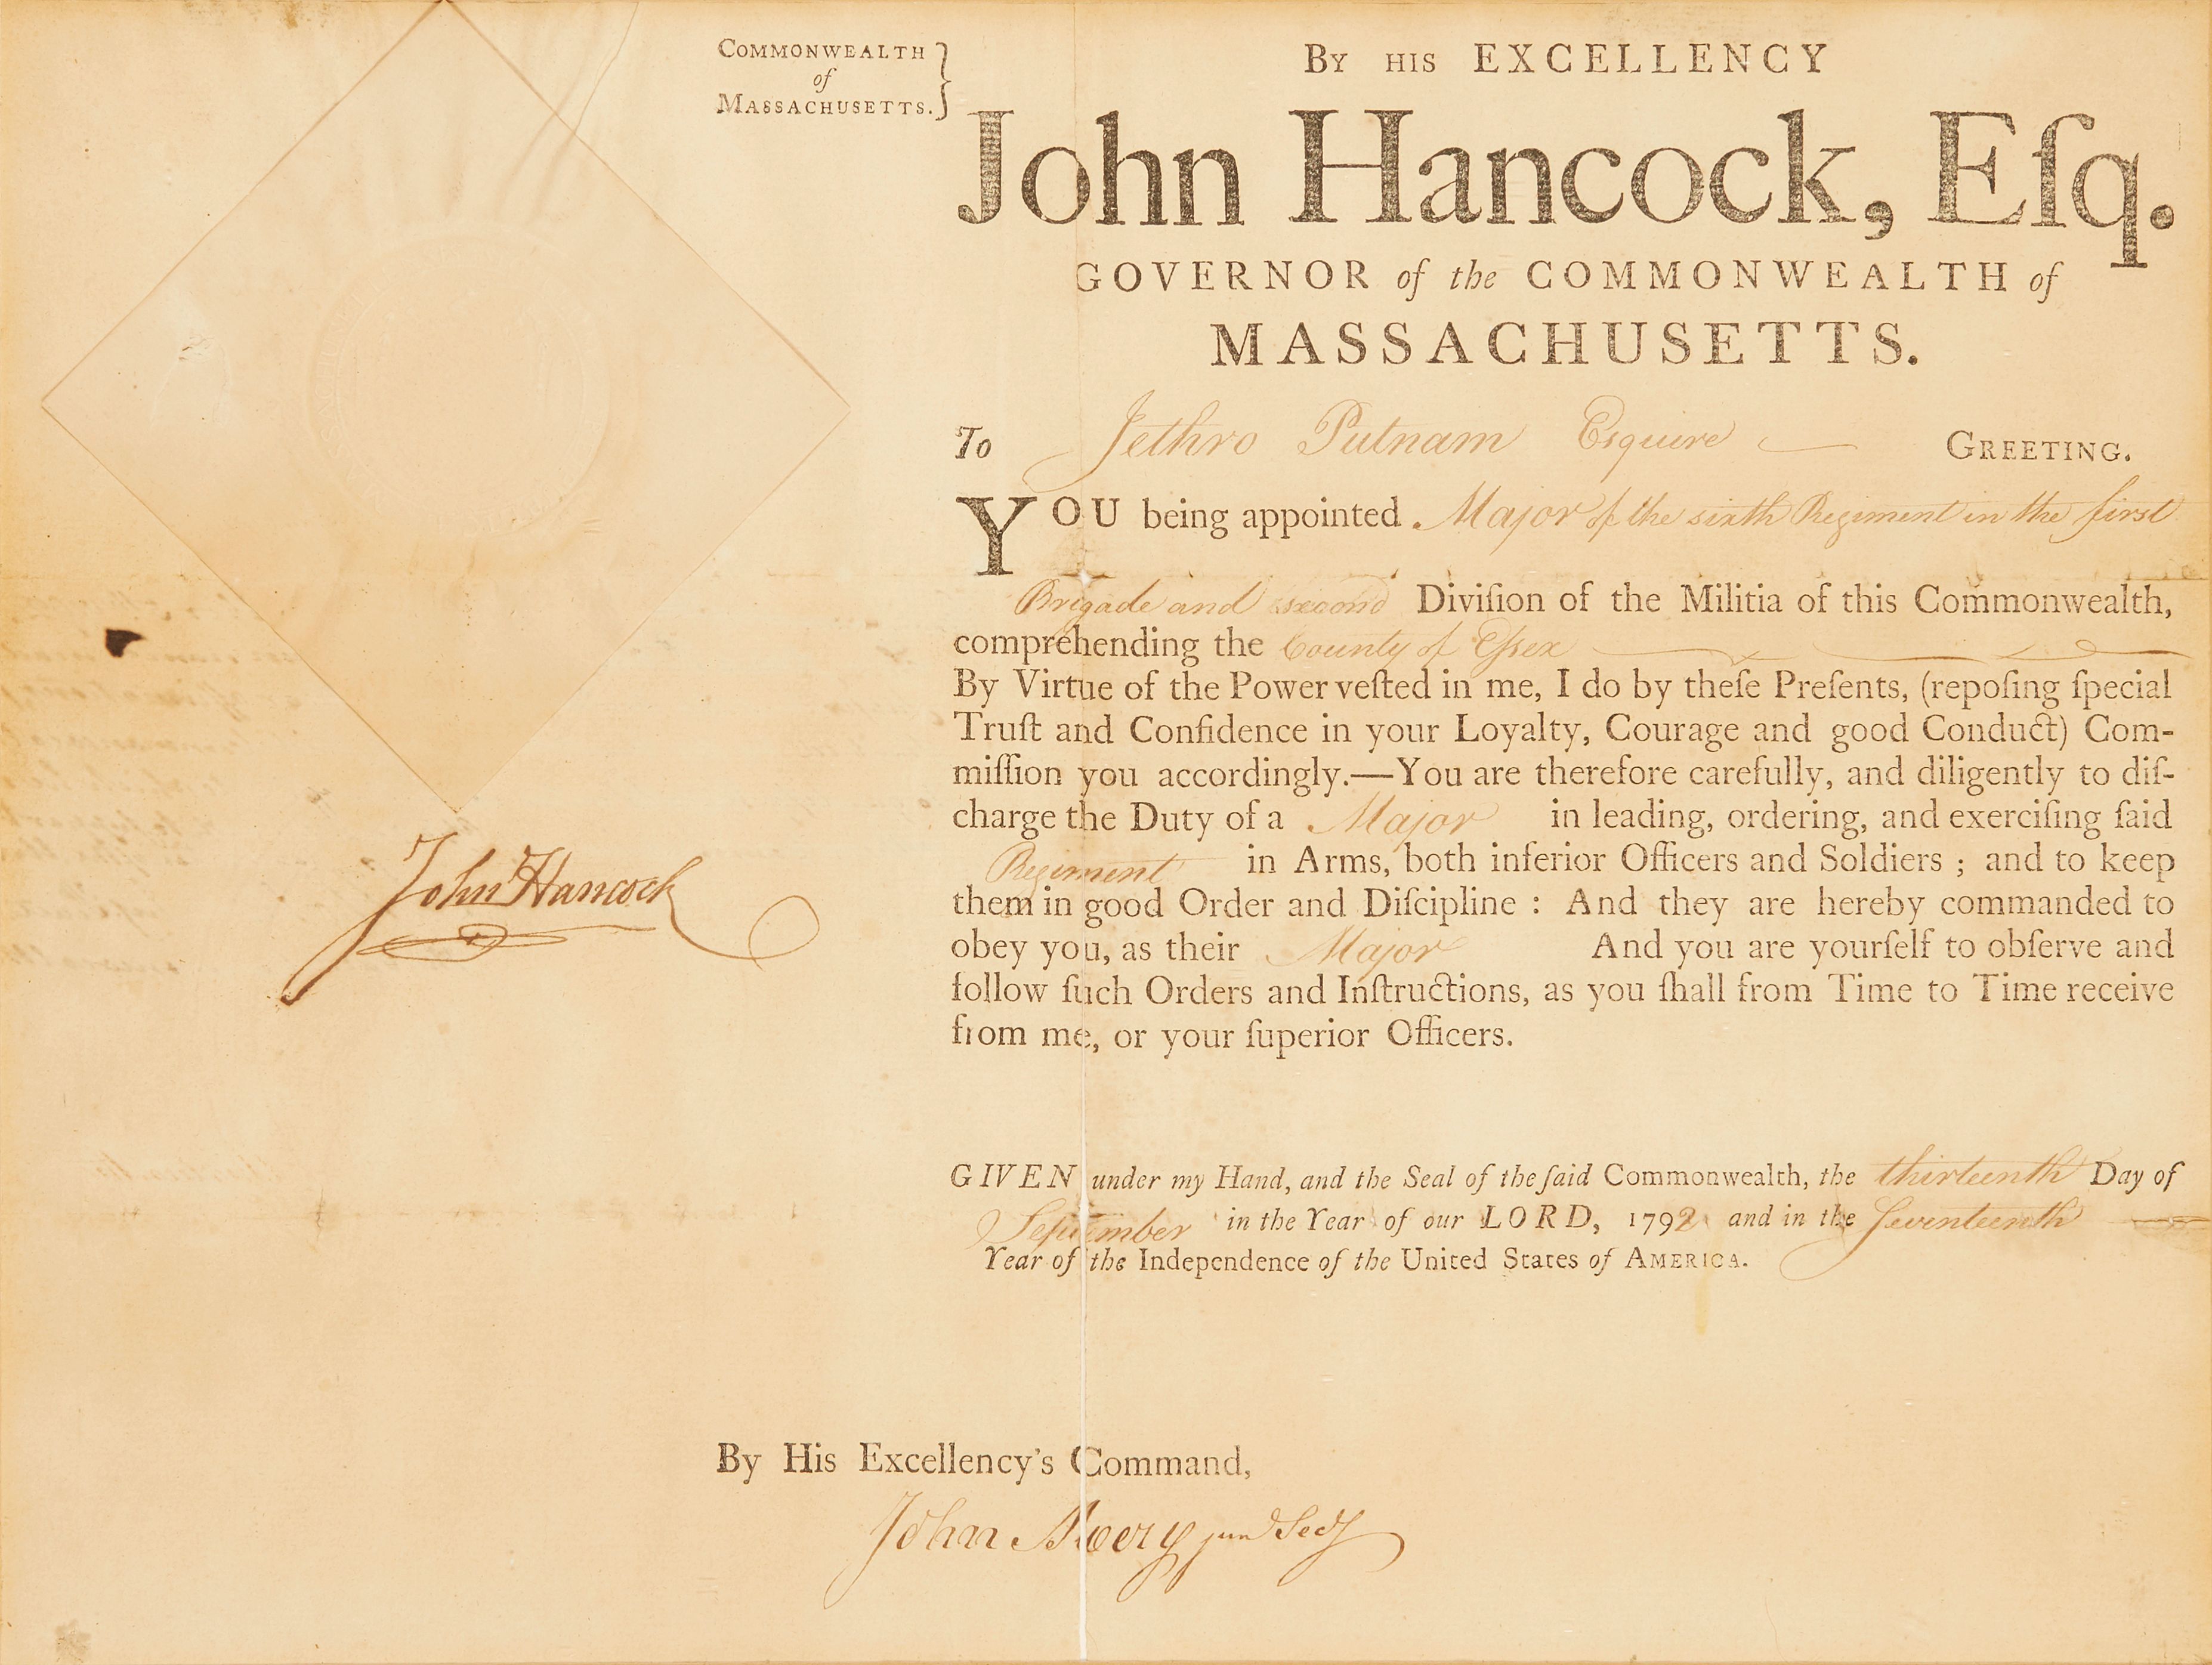 COMMONWEALTH
of
MASSACHUSETTS.
BY HIS EXCELLENCY
John Hancock, Eſq.
GOVERNOR of the COMMONWEALTH of
MASSACHUSETTS.
To Jethro Putnam Esquire GREETING.
YOU being appointed Major of the sixth Regiment in the first
Brigade and second Diviſion of the Militia of this Commonwealth,
comprehending the County of Eſsex
By Virtue of the Power veſted in me, I do by theſe Preſents, (repoſing ſpecial
Truſt and Confidence in your Loyalty, Courage and good Conduct) Com-
miſſion you accordingly.—You are therefore carefully, and diligently to diſ-
charge the Duty of a Major in leading, ordering, and exerciſing ſaid
Regiment in Arms, both inferior Officers and Soldiers ; and to keep
them in good Order and Diſcipline : And they are hereby commanded to
obey you, as their Major And you are yourſelf to obſerve and
follow ſuch Orders and Inſtructions, as you ſhall from Time to Time receive
from me, or your ſuperior Officers.
John Hancock
GIVEN under my Hand, and the Seal of the ſaid Commonwealth, the thirteenth Day of
September in the Year of our LORD, 1792 and in the Seventeenth
Year of the Independence of the United States of AMERICA.
By His Excellency's Command,
John Avery junr Secy